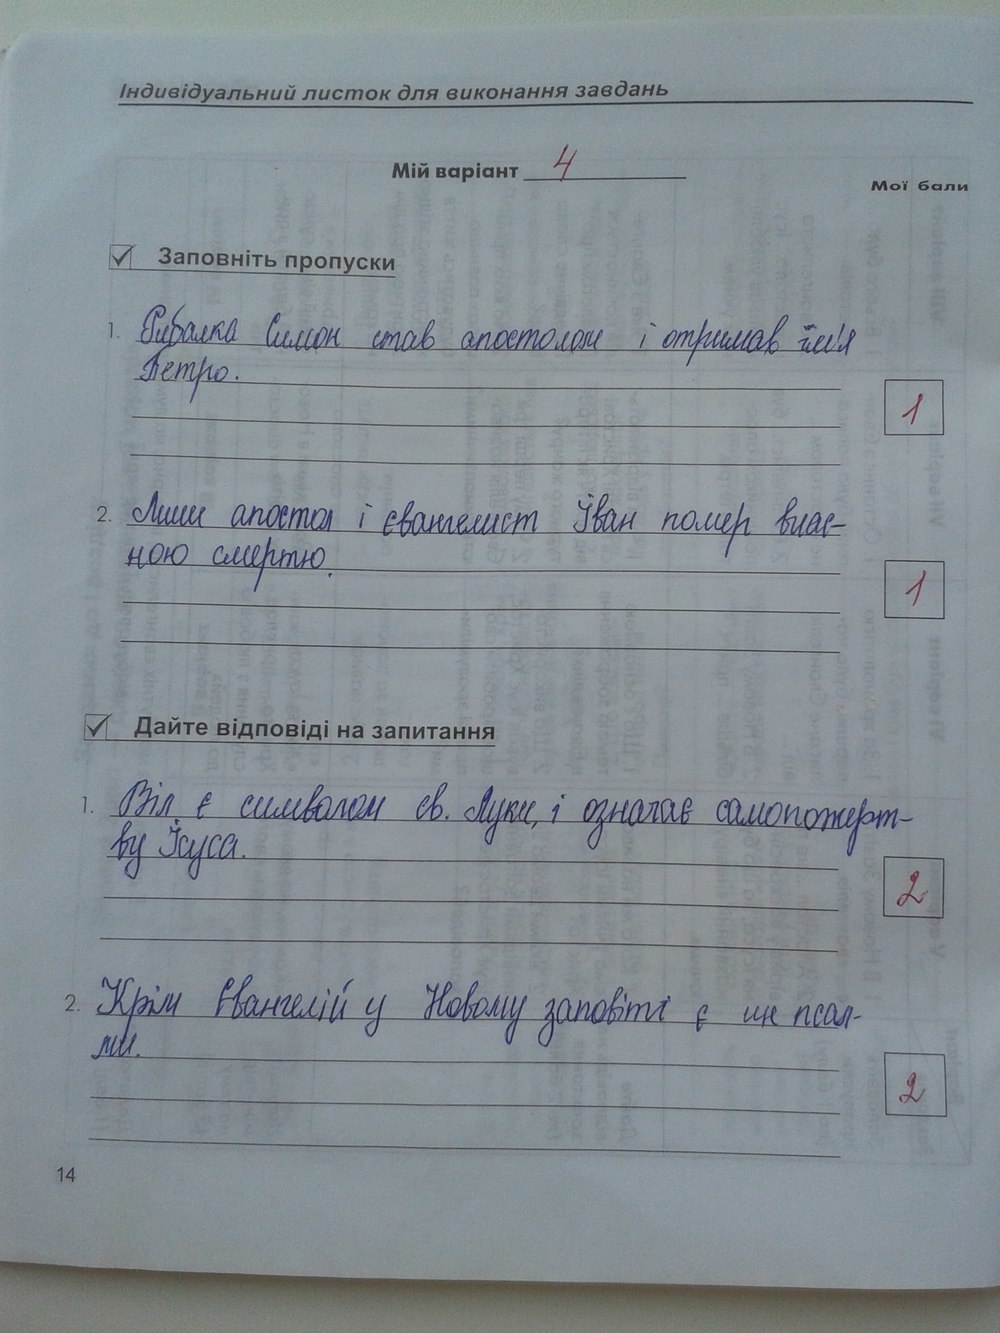 Індивідуальний листок для виконання завдань
Мій варіант 4
Мої бали
Заповніть пропуски
1. Рибалка Симон став апостолом і отримав їм'я
Петро.
1
2. Лиши апостол і євангелист Іван помер влас-
ною смертю.
1
Дайте відповіді на запитання
1. Віл є символом св. Луки, і означає самопожерт-
ву Ісуса.
2
2. Крім Євангелій у Новому заповіті є ще псал-
ми.
2
14